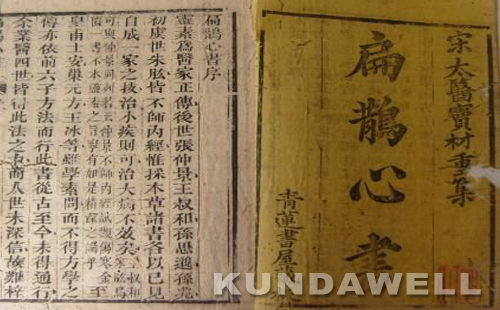 宋太醫竇材重集
扁鵲心書
青蓮書屋
扁鵲心書序
靈素爲醫家正傳後世張仲景王叔和孫思邈孫兆
初虞世朱肱皆不師內經惟採本草諸書各以己見
自成一家之技治小疾則可治大病不效矣
皇甫士安巢元方王冰等雖學素問而不得方學之
傳亦依前六子方法而行此書從古至今未得通行
余業醫四世皆得此法之而人世未深信故難梓
KUNDAWELL